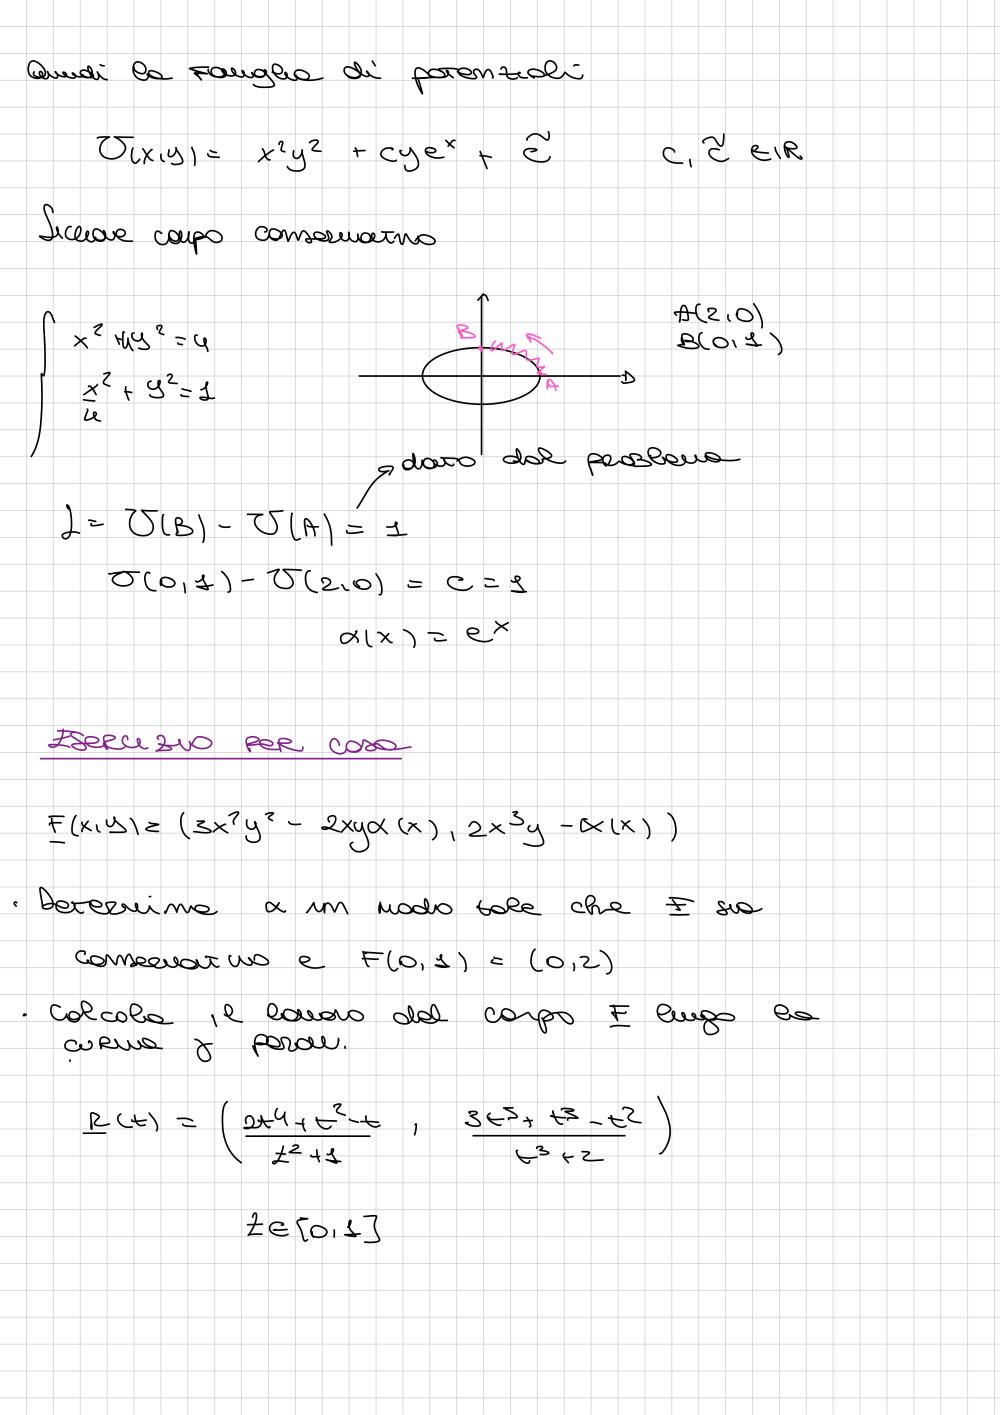 Quindi la famiglia di potenziali
U(x,y) = x²y² + cye^x + c̃    c, c̃ ∈ ℝ
campo conservativo
x² + 4y² = 4
x²/4 + y² = 1
B
A
A(2,0)
B(0,1)
dato dal problema
L = U(B) - U(A) = 1
U(0,1) - U(2,0) = c = 1
α(x) = e^x
Esercizio per casa
F(x,y) = (3x²y² - 2xyα(x), 2x³y - α(x))
· Determina α in modo tale che F sia
conservativo e F(0,1) = (0,2)
· Calcola il lavoro del campo F lungo la
curva γ param.
R(t) = ( (2t⁴ + t² - t)/(t² + 1) , (3t⁵ + t³ - t²)/(t³ + 2) )
t ∈ [0,1]